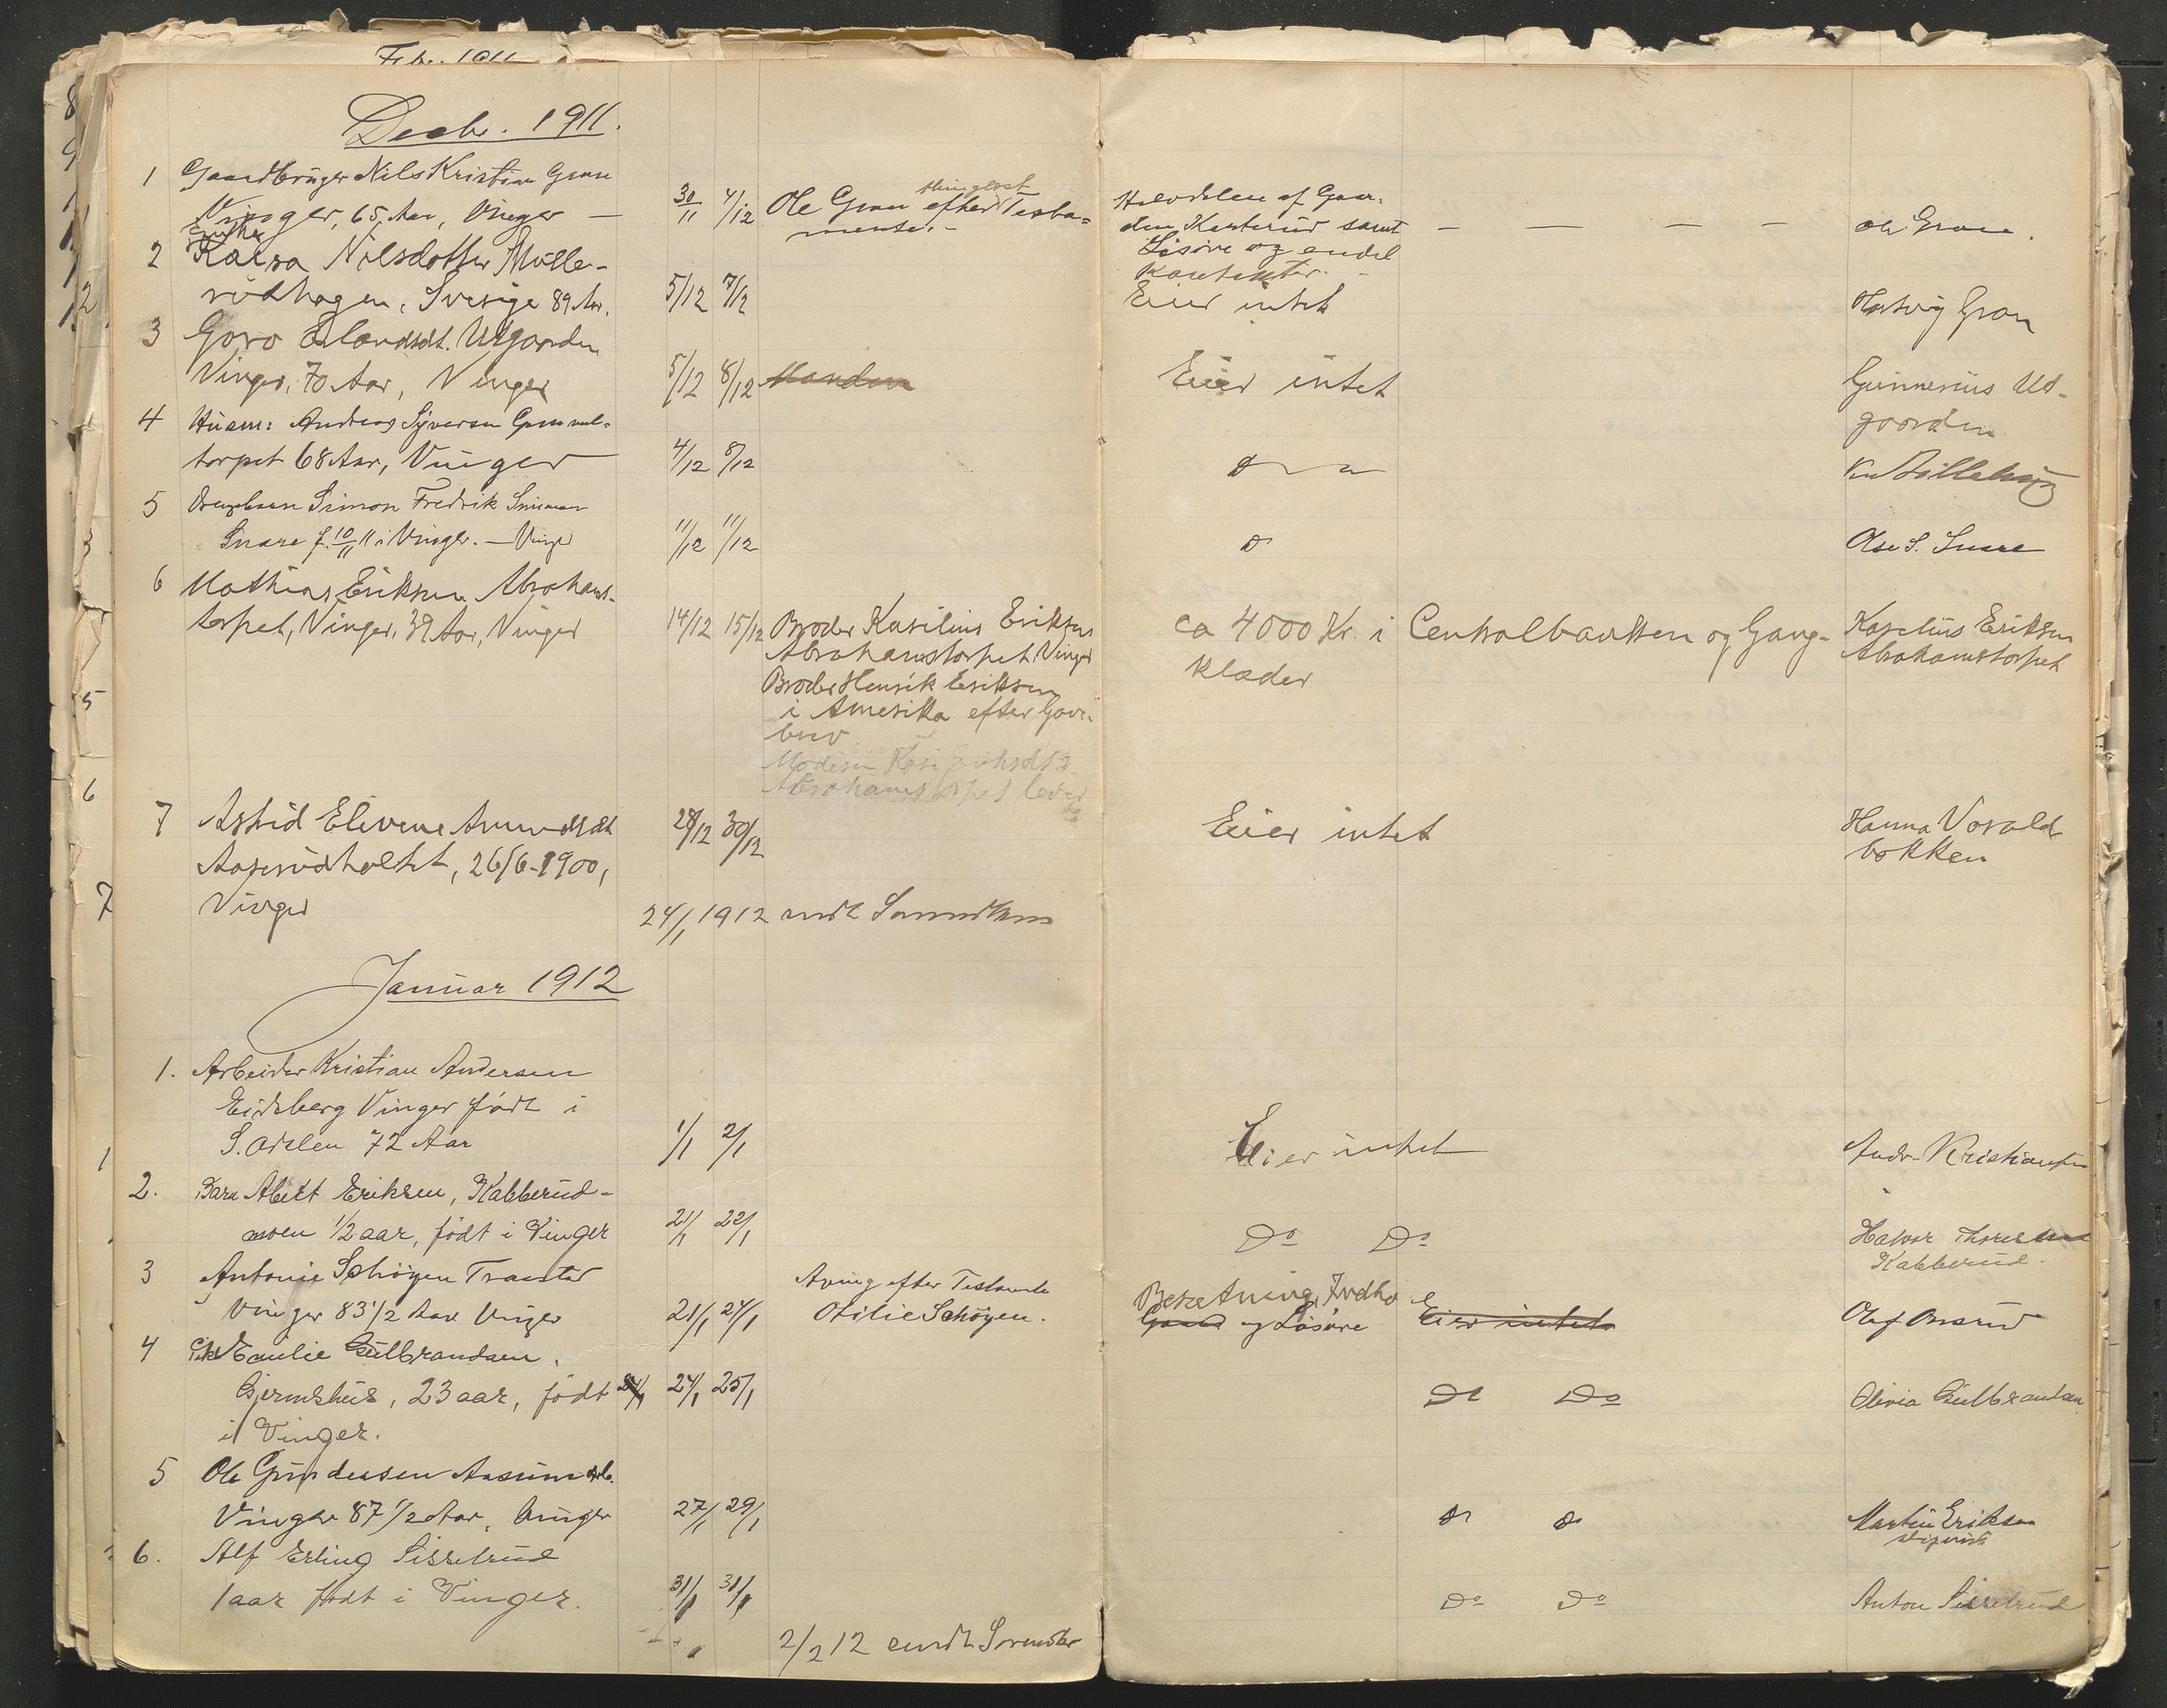 Decbr. 1911.
1 Gaardbruger Nils Kristian Gran
Vinger, 65 Aar, Vinger — 30/11 4/12 Ole Gran efter thinglæst Testa=
mente. –
Halvdelen af Gaar-
den Kasterud samt
Løsøre og endel
Kontanter. –
— — — — Ole Gran.
2 Enke Kaisa Nilsdotter Mølle-
rudhagen, Sverige 89 Aar. 5/12 7/12 Eier intet Hartvig Gran
3 Goro Erlandsdt. Utgaarden
Vinger, 70 Aar, Vinger 5/12 8/12 Manden Eier intet Gunnerius Ut-
gaarden
4 Husm: Andreas Syversen Gammel-
torpet 68 Aar, Vinger 4/12 8/12 Do
5 Simon Fredrik Simensen
Snare f. 10/11 11 i Vinger. — Vinger 11/12 11/12 Do Ole S. Snare
6 Mathias Eriksen Abrahams-
torpet, Vinger, 39 Aar, Vinger 14/12 15/12 Broder Kasilius Eriksen
Abrahamstorpet, Vinger
Broder Henrik Eriksen
i Amerika efter Gave-
brev
Moderen Kari Eriksdt.
Abrahamstorpet lever
ca 4000 Kr. i Centralbanken og Gang-
klæder
Kaselius Eriksen
Abrahamstorpet
7 Astrid Elivine Amundsdt.
Aaserudholtet, 26/6-1900,
Vinger
28/12 30/12 Eier intet Hanna Vorald-
bakken
24/1 1912 sendt Sorensk
Januar 1912
1. Arbeider Kristian Andersen
Eidsberg Vinger født i
S. Odalen 72 Aar 1/1 2/1 Eier intet Andr. Kristiansen
2. Barn Albert Eriksen, Kabberud-
moen 1/2 aar, født i Vinger 21/1 22/1 Do Do Halvor Thoresen
Kabberud.
3 Antonie Schøyen Tranter
Vinger 83 1/2 Aar Vinger 21/1 24/1 Arving efter Testamente
Otilie Schøyen.
Besætning, Indbo
Gaard og Løsøre Eier intet Olaf Aasrud
4 Pike Emilie Gulbrandsen,
Gjermshus, 23 aar, født 24/1 24/1 25/1 Do Do Olivia Gulbrandsen
i Vinger.
5 Ole Gundersen Aasum
Vinger 87 1/2 Aar, Vinger 27/1 29/1 Do Do Martin Eriksen
6. Alf Erling Sisselrud
1 aar født i Vinger. 31/1 31/1 Do Do Anton Sisselrud
2/2 12 sendt Sorensk